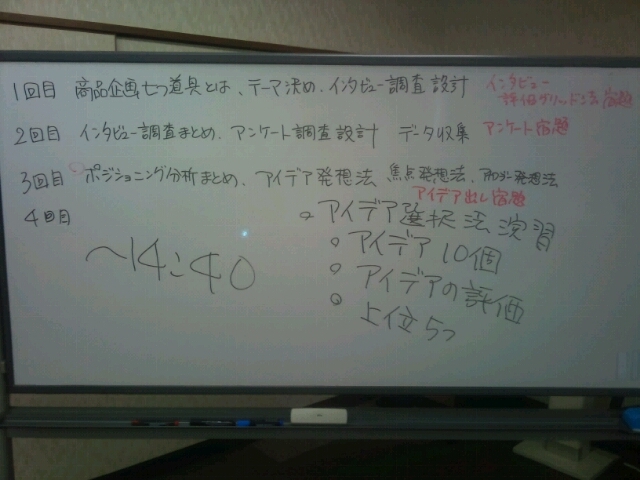 1回目 商品企画七つ道具とは、テーマ決め、インタビュー調査設計 インタビュー
評価グリッド法宿題
2回目 インタビュー調査まとめ、アンケート調査設計 データ収集 アンケート宿題
3回目 ポジショニング分析まとめ、アイデア発想法 焦点発想法、アナロジー発想法
アイデア出し宿題
4回目
。アイデア選択法演習
。アイデア10個
〜14:40
。アイデアの評価
。上位5つ